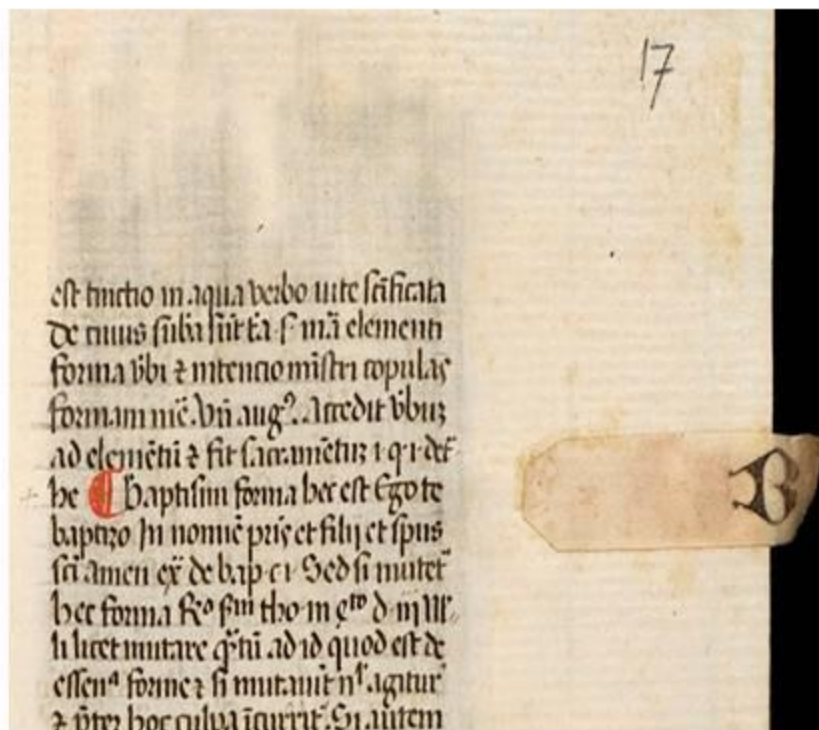 17
est tinctio in aqua verbo uite scīficata
De cuius sūba sūt
elementi
forma v̄bi ⁊ intencio mīstri copulās
formam
Vn̄ augꝰ. Accedit v̄buꝫ
ad elemētū ⁊ fit sacramētuꝫ
he ¶ Baptismi forma hec est Ego te
baptizo In nomīe pr̄is et filij et sp̄us
sc̄i Amen ex̄ de bap c i Sed si mutet᷑
hec forma
tho in
d iij
li licet mutare
ad id quod est de
essenᵃ forme ⁊ si mutauit
agitur
⁊ p̄ter hoc culpā īcurrit. Si autem
B